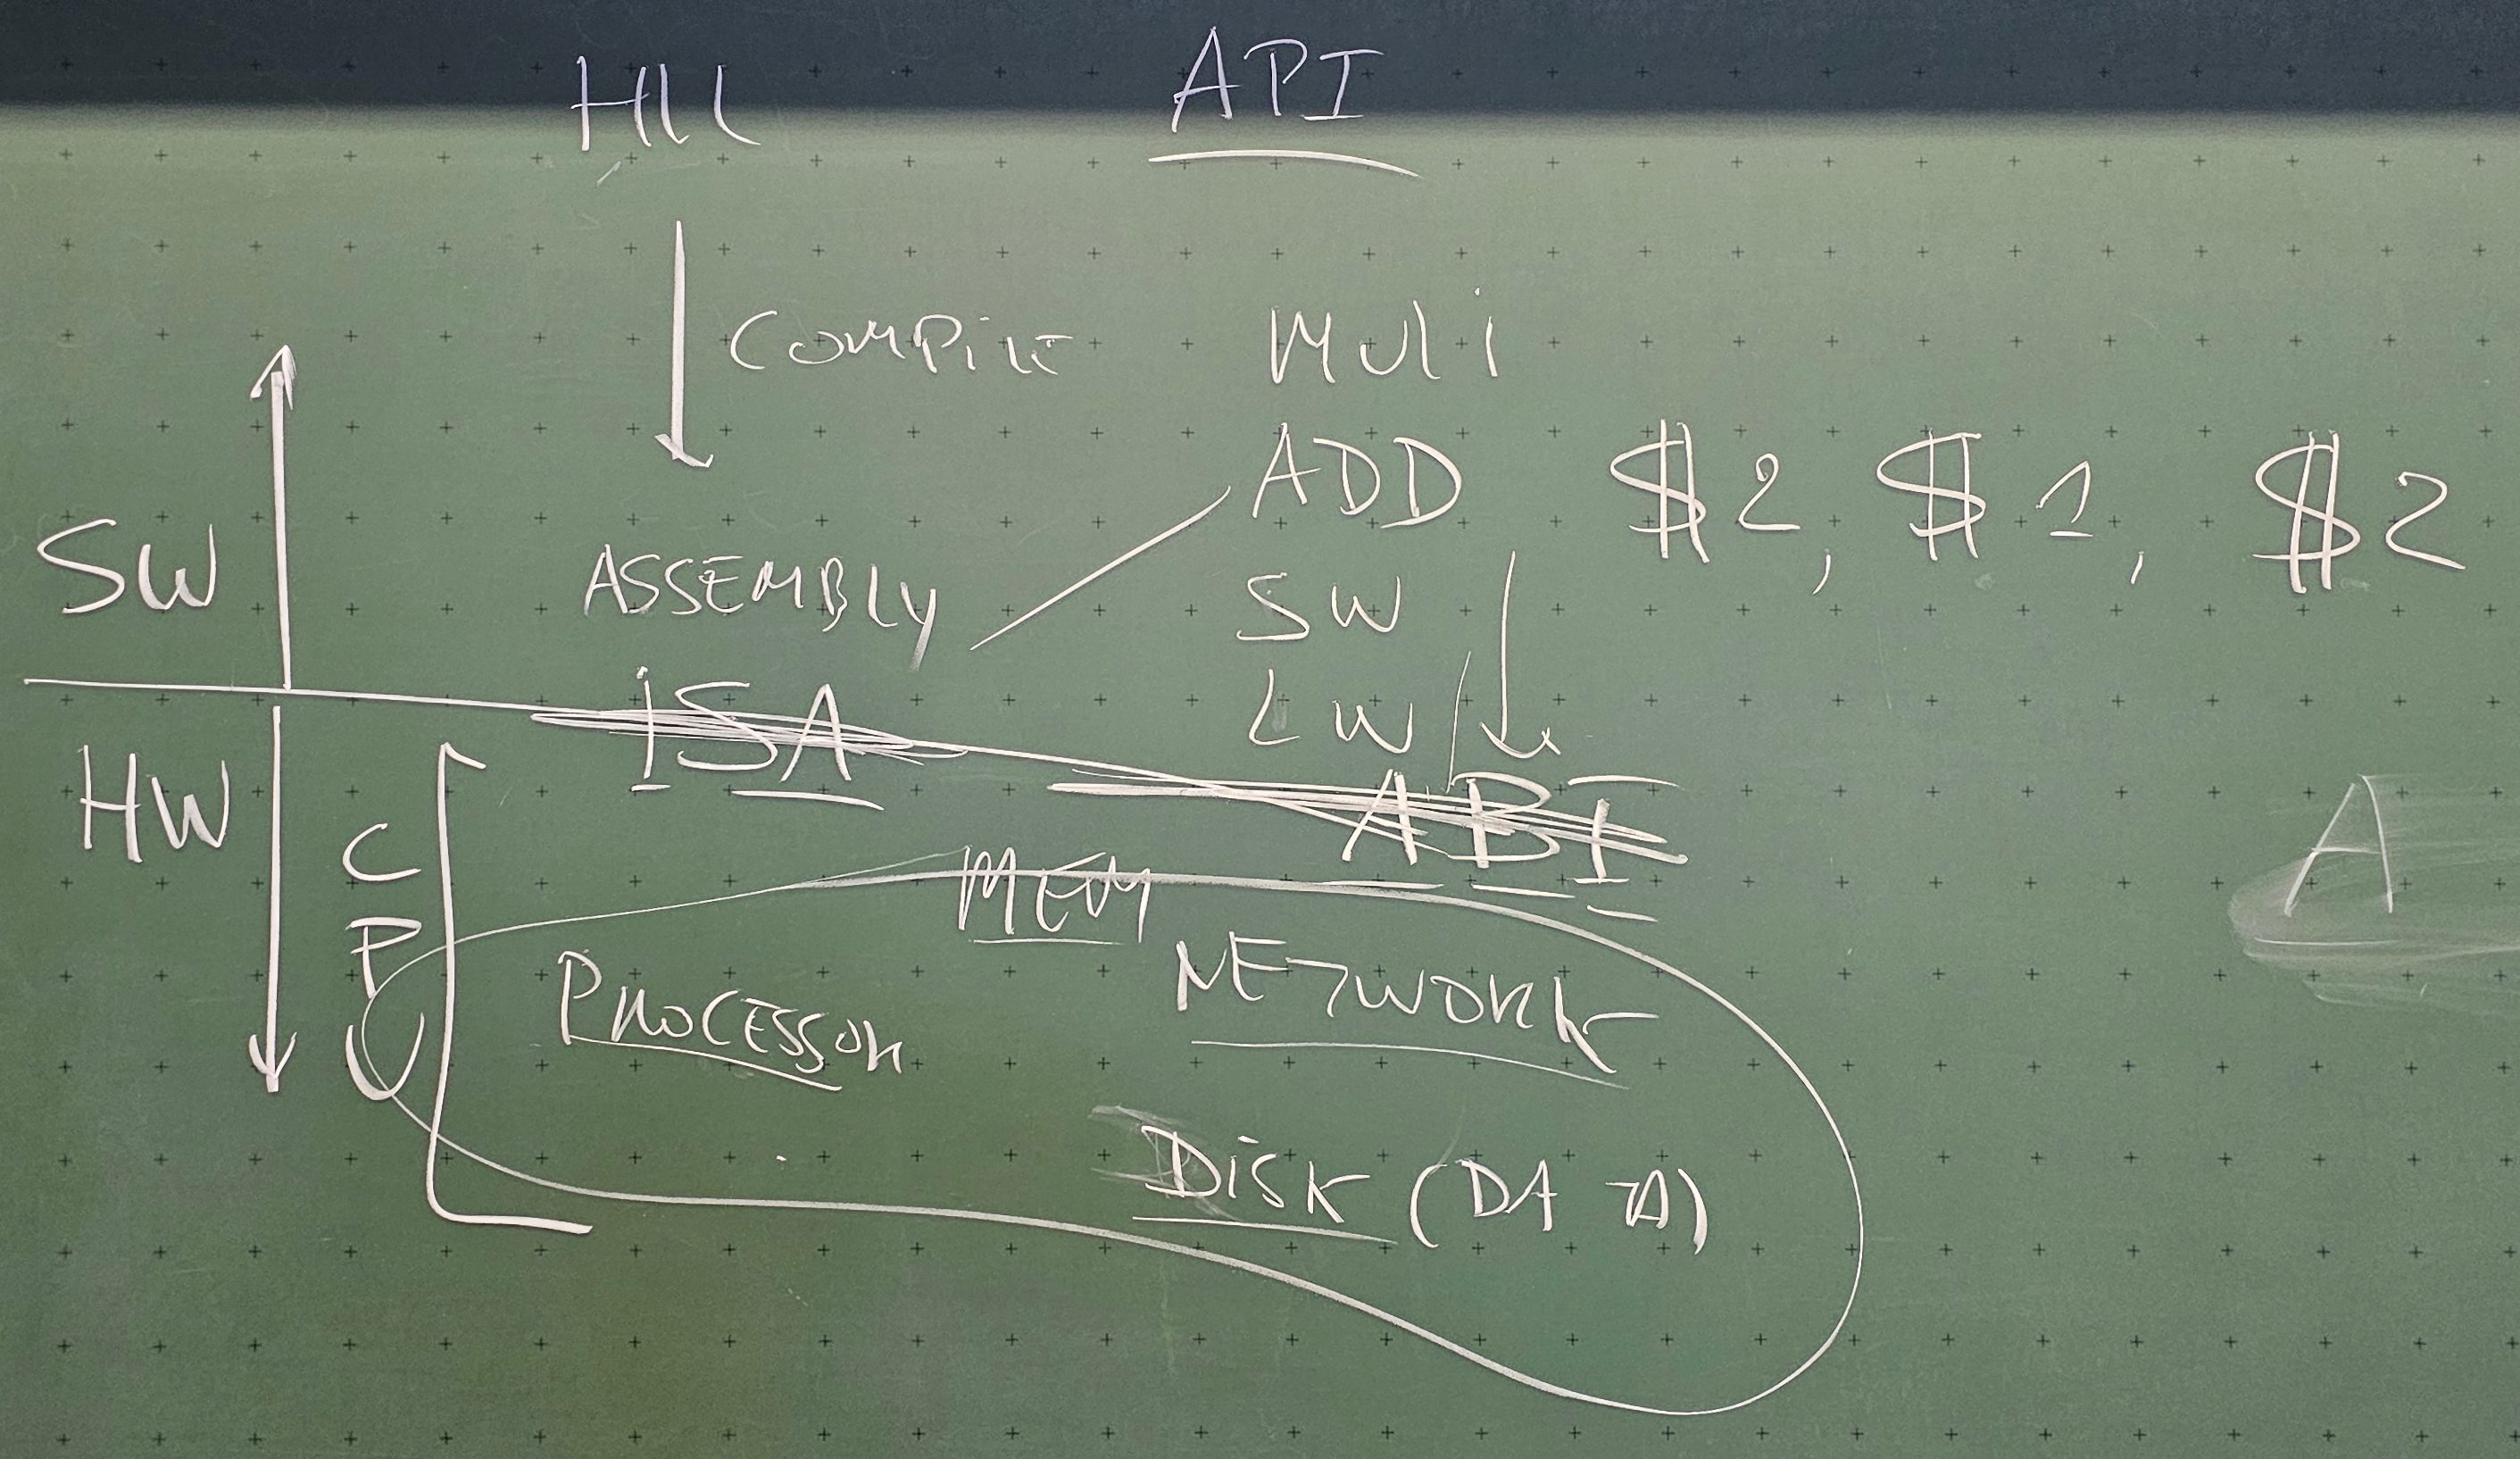 HLL API
COMPILE MULi
ADD $2, $1, $2
SW ASSEMBLY SW
ISA LW
HW ABI
CPU MEM
PROCESSOR NETWORK
DISK (DATA)
A